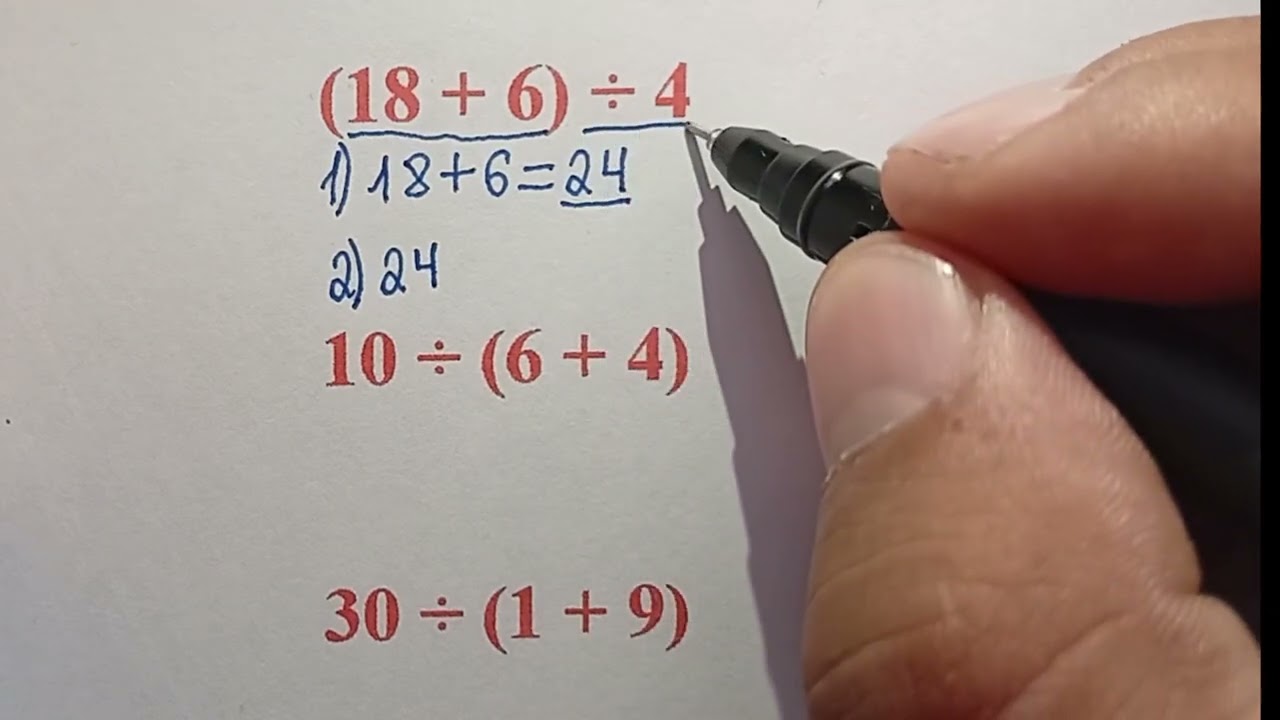 (18 + 6) ÷ 4
1) 18+6=24
2) 24
10 ÷ (6 + 4)
30 ÷ (1 + 9)